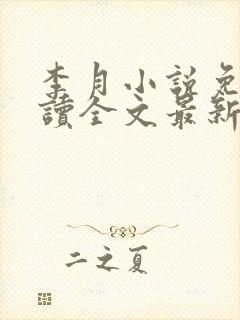 李月小說免
讀全文最新
二之夏